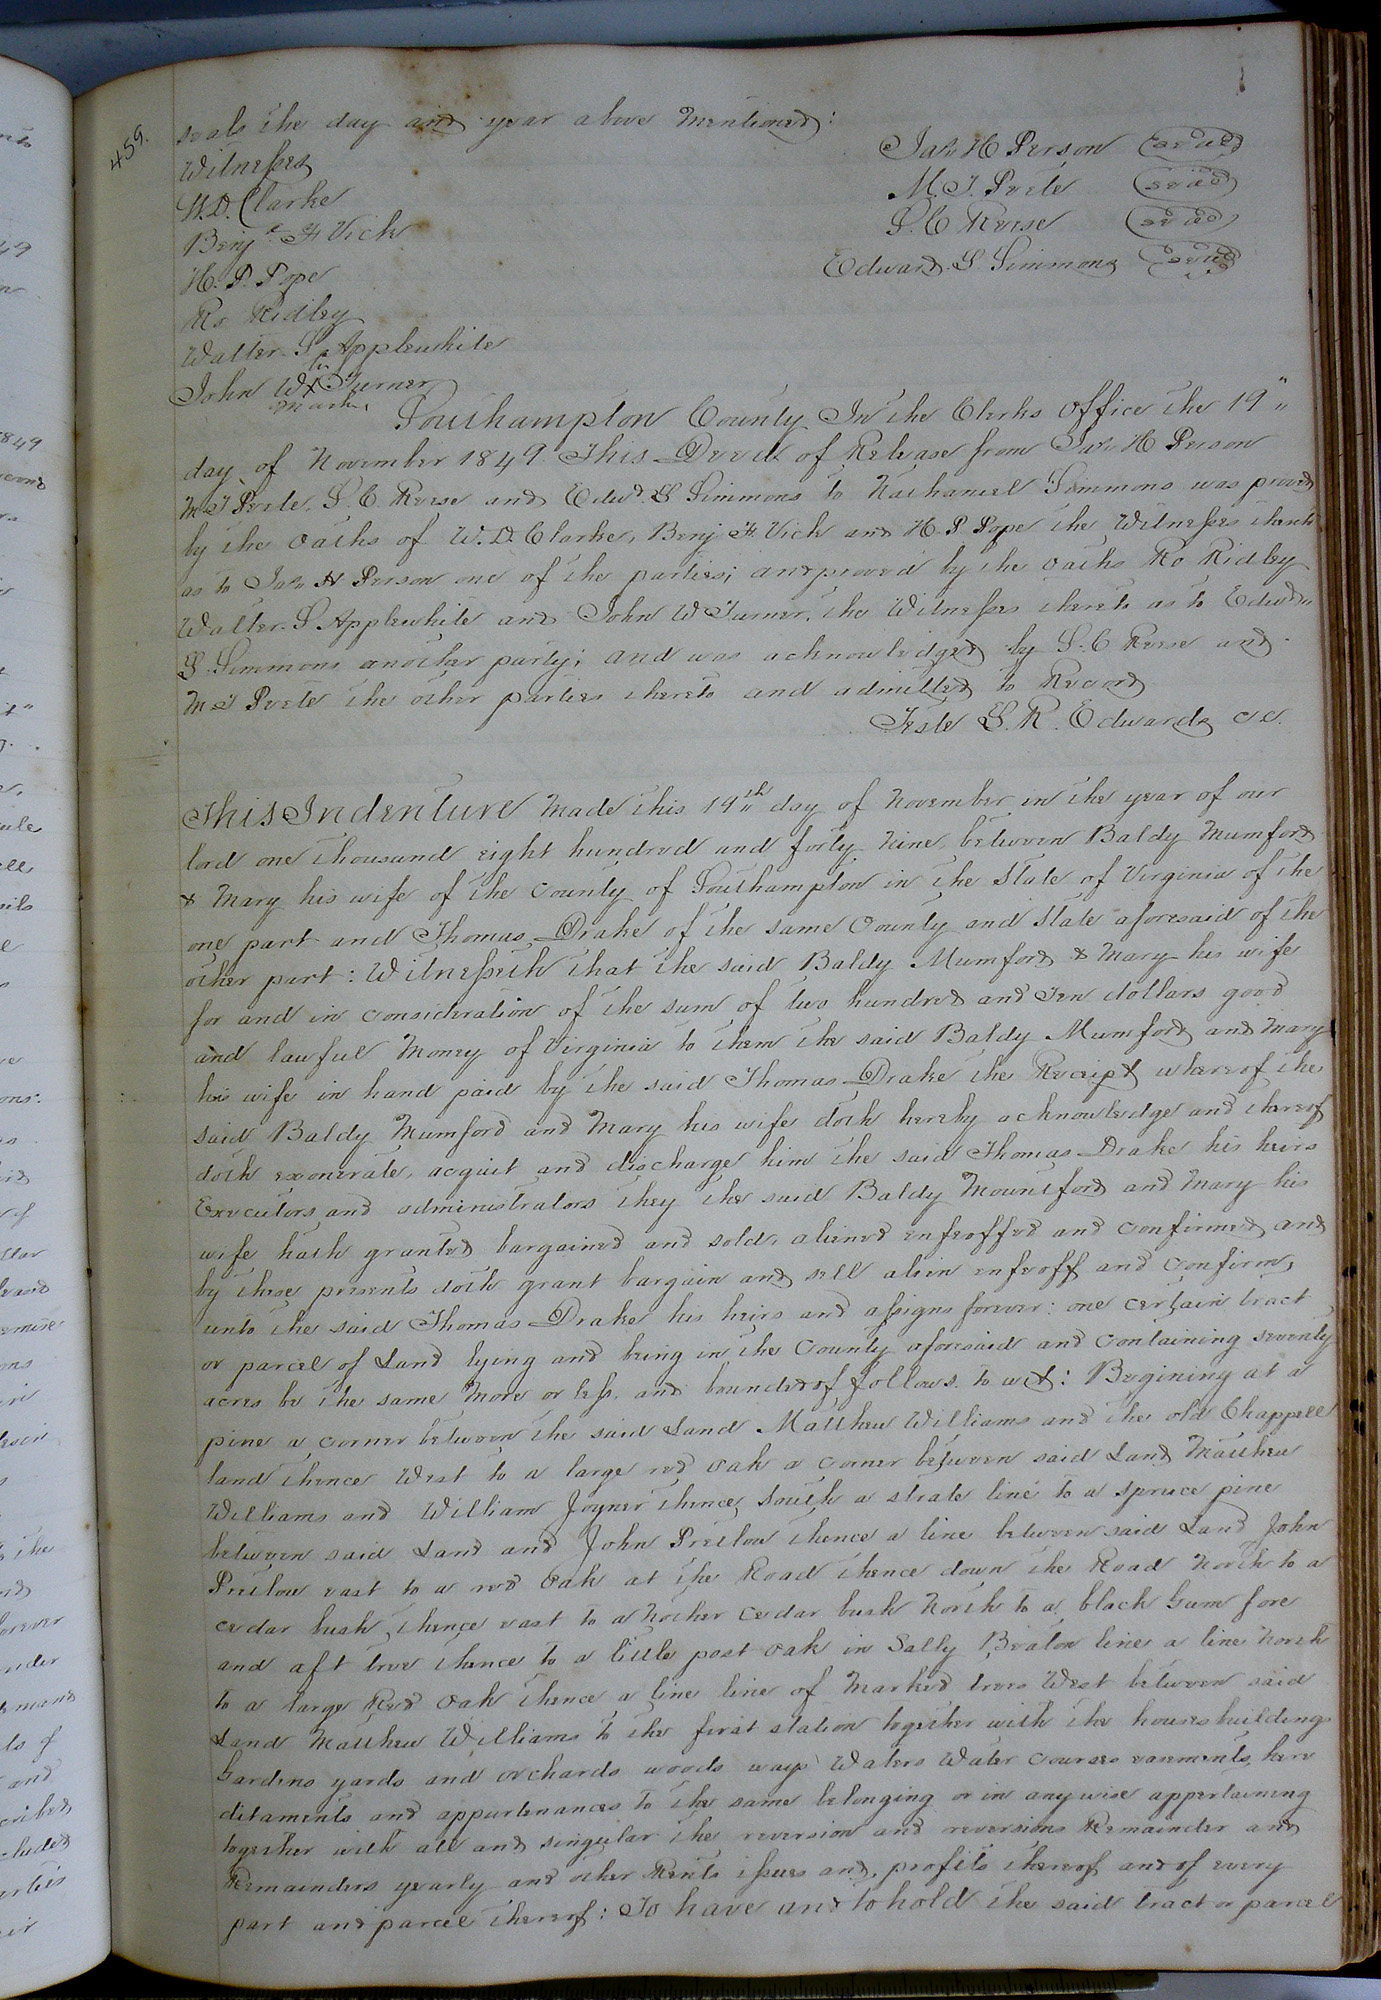 459.
seals the day and year above mentioned:
Witnesses
Jas. H Person (Seal)
W. D. Clarke
M. T. Peete (Seal)
Benj. F Vick
S. C Reese (Seal)
H. P. Pope
Edward S Simmons (Seal)
Ro Ridley
Walter S Applewhite
John W X Turner
mark
Southampton County In the Clerks office the 19"
day of November 1849 This Deed of Release from Jas. H Person
M T Peete, S. C. Reese and Edwd. S Simmons to Nathaniel Simmons was proved
by the oaths of W. D. Clarke, Benj F. Vick and H. P Pope the Witnesses thereto
as to Jas H Person one of the parties; and proved by the oaths Ro Ridley
Walter S Applewhite and John W Turner, the Witnesses thereto as to Edwd.
S. Simmons another party; and was acknowledged by S. C Reese and
M T Peete the other parties thereto and admitted to Record
Teste L. R. Edwards CSC.
This Indenture Made this 19th day of November in the year of our
lord one thousand eight hundred and forty Nine, between Baldy Mumford
& Mary his wife of the County of Southampton in the State of Virginia of the
one part and Thomas Drake of the same County and State aforesaid of the
other part: Witnesseth that the said Baldy Mumford & Mary his wife
for and in consideration of the sum of two hundred and Ten dollars good
and lawful Money of Virginia to them the said Baldy Mumford and Mary
his wife in hand paid by the said Thomas Drake the Receipt whereof the
said Baldy Mumford and Mary his wife doth hereby acknowledge and thereof
doth exonerate, acquit and discharge him the said Thomas Drake his heirs
Executors and administrators they the said Baldy Mountford and Mary his
wife hath granted bargained and sold, aliened enfeoffed and confirmed and
by these presents doth grant bargain and sell alien enfeoff and confirm,
unto the said Thomas Drake his heirs and assigns forever: one certain tract
or parcel of Land lying and being in the County aforesaid and containing seventy
acres be the same more or less, and bounded of follows to wit: Begining at a
pine a corner between the said Land Matthew Williams and the old Chappell
land thence West to a large red oak a corner between said Land Matthew
Williams and William Joyner thence South a strate line to a spruce pine
between said Land and John Pretlow thence a line between said Land John
Pretlow east to a red oak at the Road thence down the Road North to a
cedar bush thence east to a nother cedar bush North to a black Gum fore
and aft tree thence to a little post oak in Sally Beaton line a line North
to a large Red oak thence a line line of Marked trees West between said
Land Matthew Williams to the first station together with the houses buildings
Gardens yards and orchards woods ways Waters Water courses easements here
ditaments and appurtenances to the same belonging or in any wise appertaining
together with all and singular the reversion and reversions Remainder and
Remainders yearly and other Rents issues and profits thereof and of every
part and parcel thereof: To have and to hold the said tract or parcel